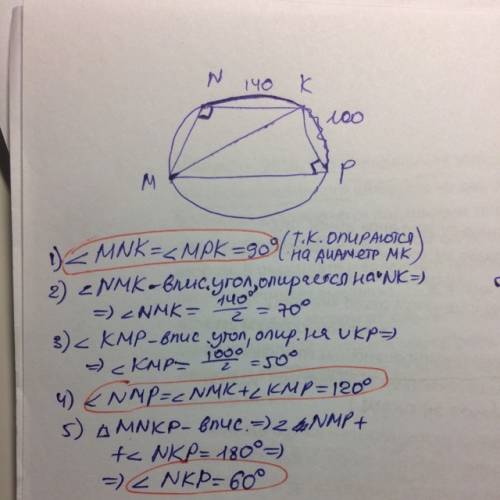 N 140 K
100
M
P
1) ∠MNK=∠MPK=90° (т.к. опираются
на диаметр МК)
2) ∠NMK-впис.угол,опирается на ∪NK⇒
⇒ ∠NMK= 140°/2 = 70°
3) ∠KMP-впис.угол, опир. на ∪KP⇒
⇒ ∠KMP= 100°/2 =50°
4) ∠NMP=∠NMK+∠KMP=120°
5) △MNKP-впис.⇒∠NMP+
+∠NKP=180°⇒
⇒ ∠NKP=60°